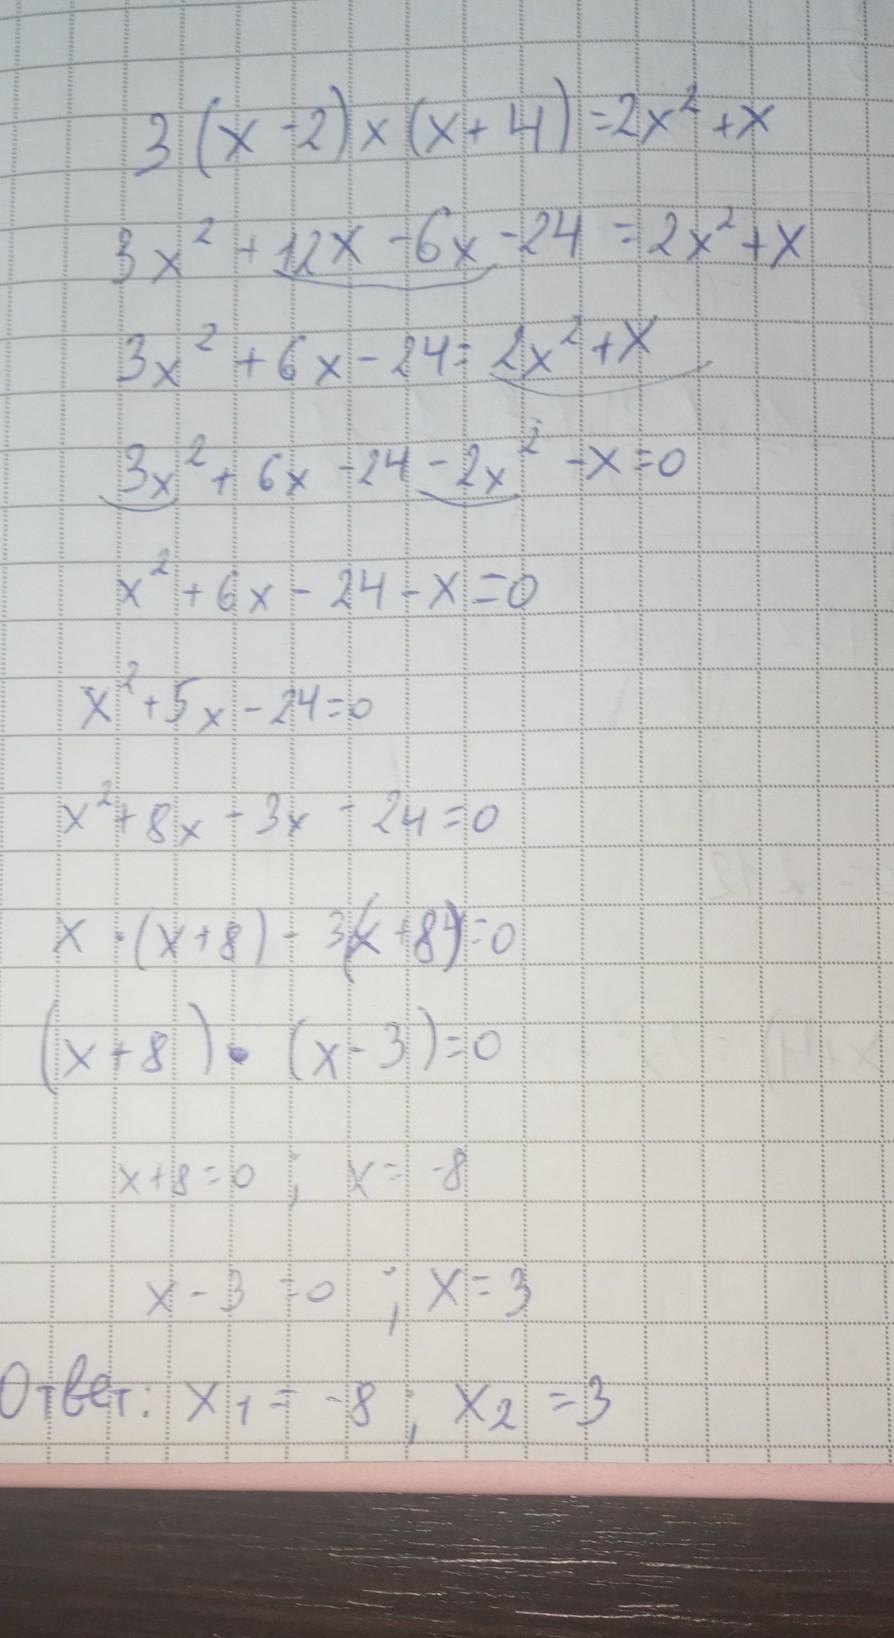 3(x-2)×(x+4)=2x²+x
3x²+12x-6x-24=2x²+x
3x²+6x-24=2x²+x
3x²+6x-24-2x²-x=0
x²+6x-24-x=0
x²+5x-24=0
x²+8x-3x-24=0
x·(x+8)-3(x+8)=0
(x+8)·(x-3)=0
x+8=0; x=-8
x-3=0; x=3
Ответ: x₁=-8; x₂=3